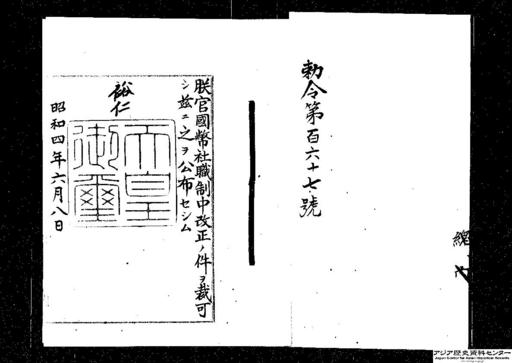 勅令第百六十七號
朕官國幣社職制中改正ノ件ヲ裁可
シ茲ニ之ヲ公布セシム
裕仁
天皇御璽
昭和四年六月八日
アジア歴史資料センター
Japan Center for Asian Historical Records